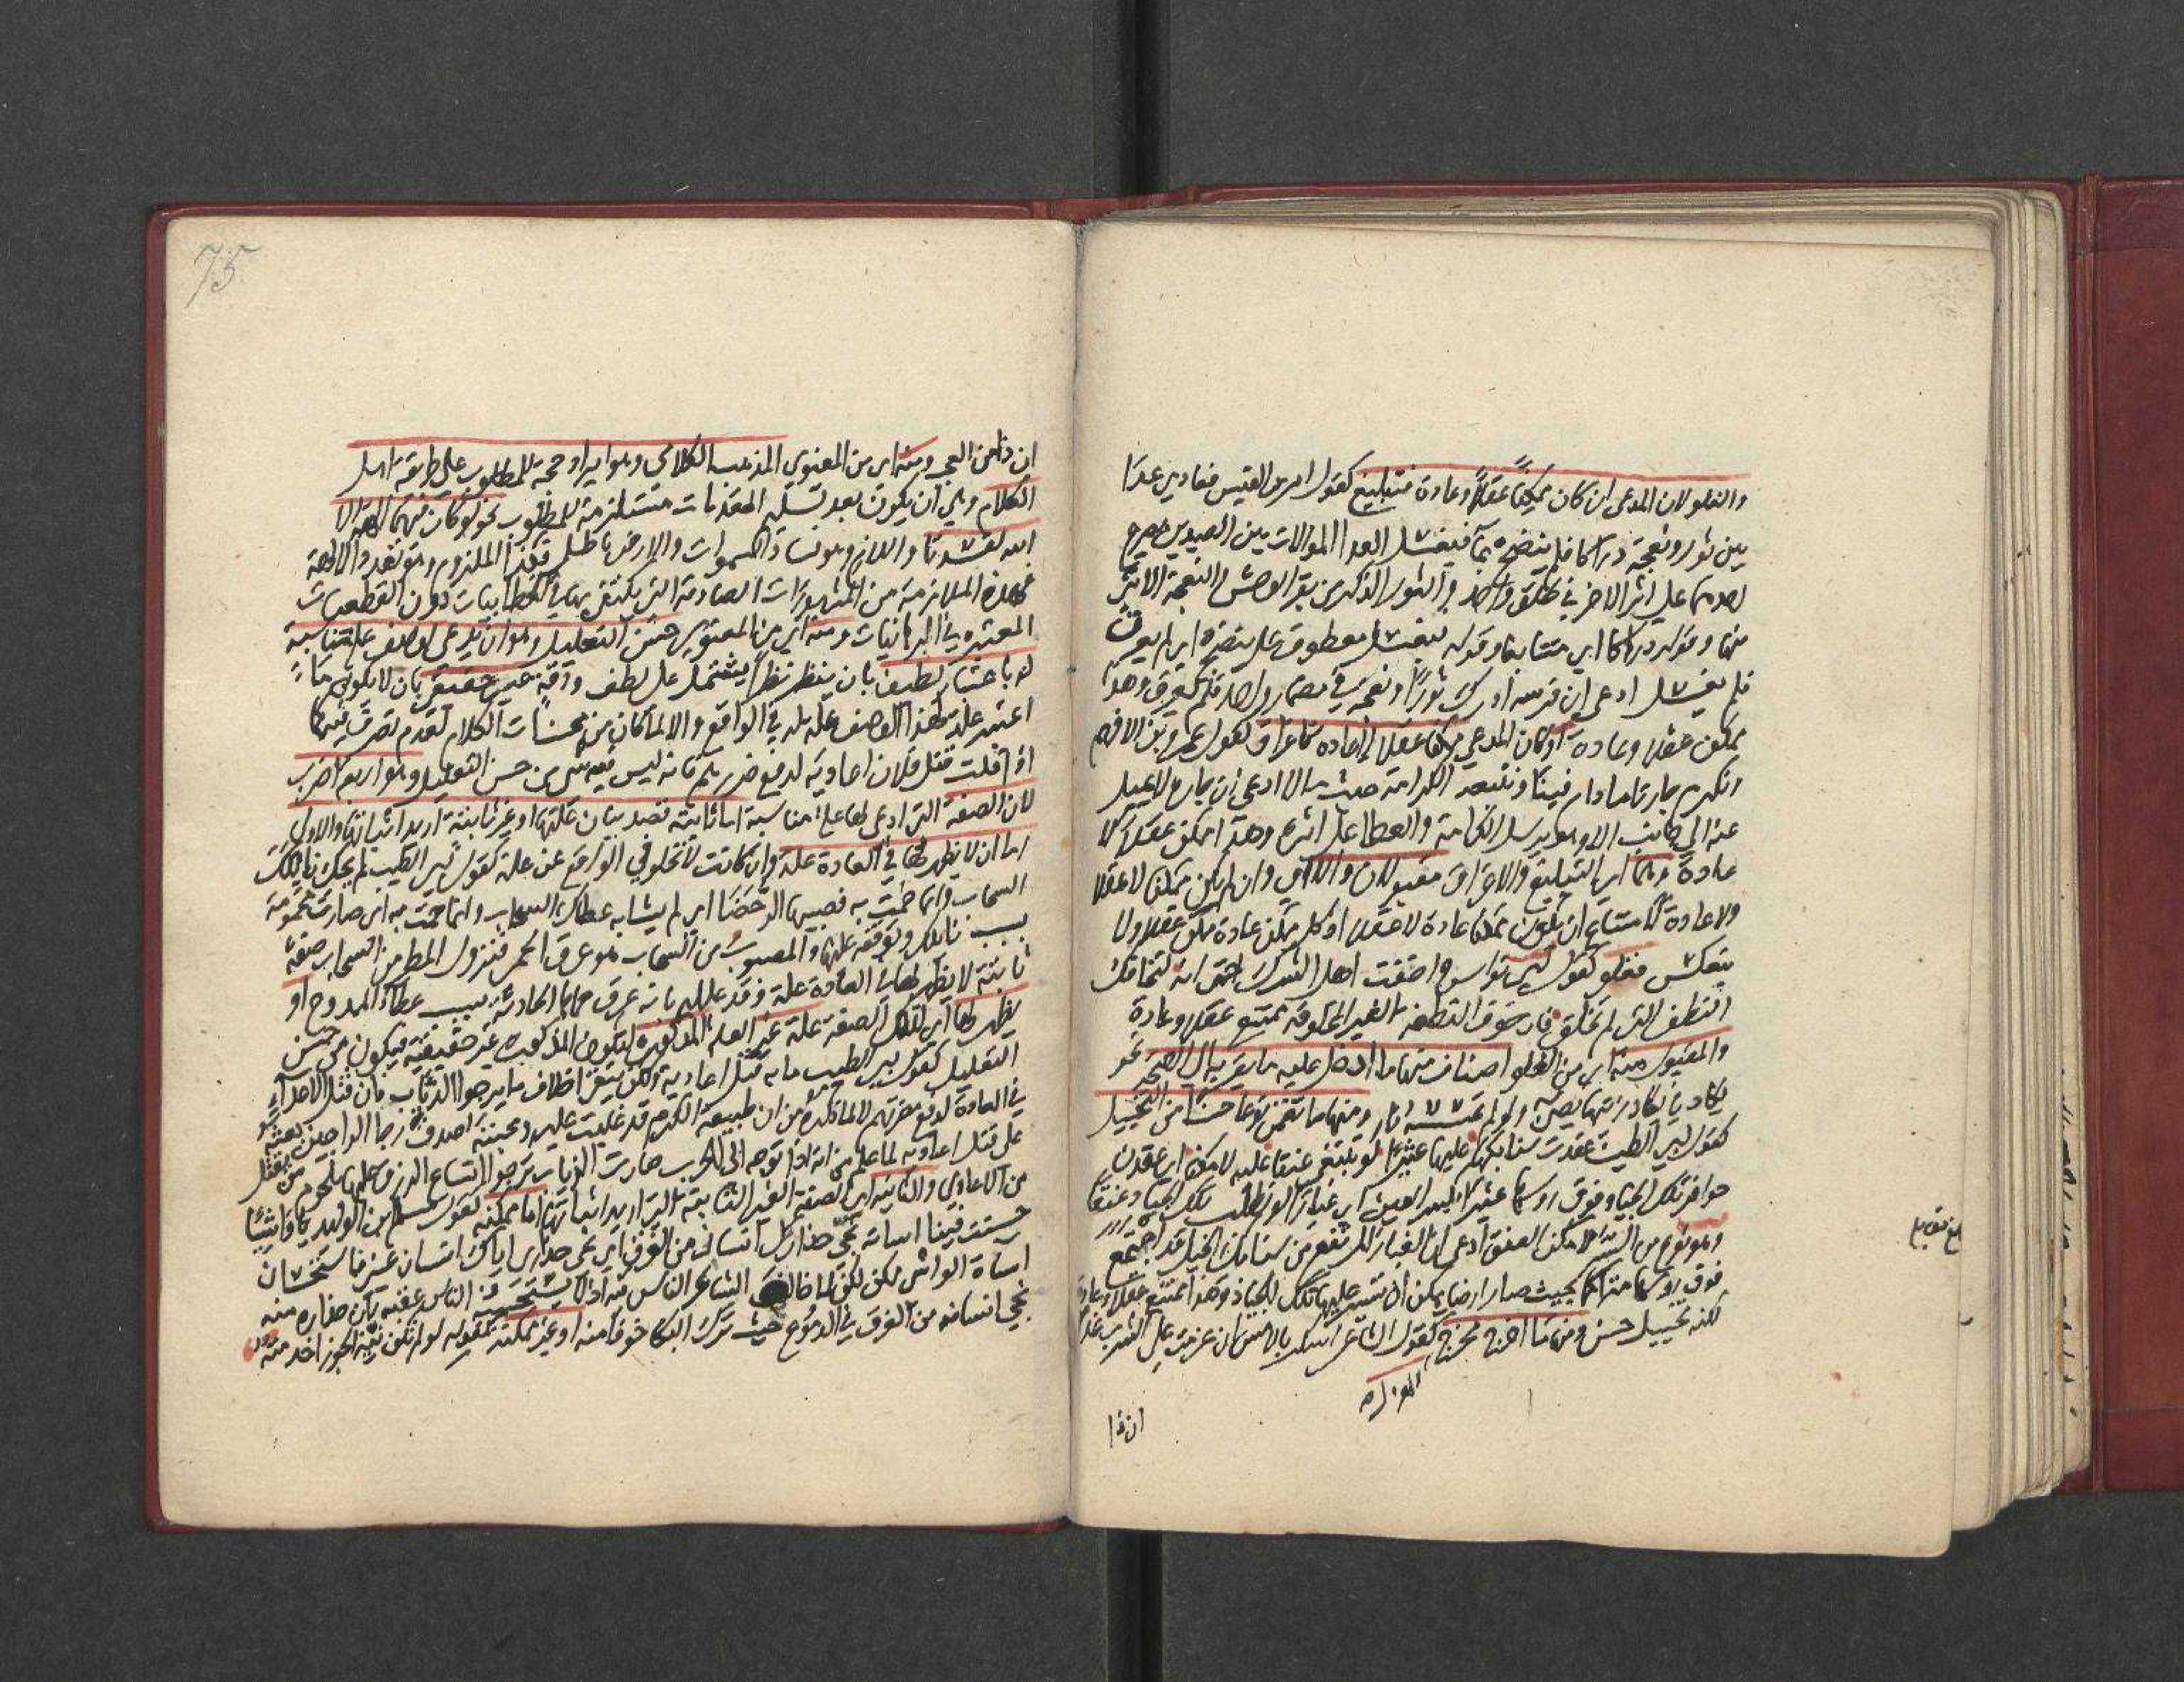 والغلو لان المدعى ان كان ممكنا عقلا وعادة فتبليغ كقول امرء القيس فعادى عداء
بين ثور ونعجة دراكا فلم ينضح بماء فيغسل العدا الموالات بين الصيدين يصرع
احدهما على اثر الاخر في طلق واحد والثور الذكر من بقر الوحش والنعجة الانثى
منها وقوله دراكا اي متتابعا وقوله فيغسل معطوف على ينضح اي لم يعرق
فلم يغسل ادعى ان فرسه ادرك ثورا ونعجة في مضمار واحد فلم يعرق وهذا
ممكن عقلا وعادة او كان المدعى ممكنا عقلا لا عادة فاغراق كقول عمرو بن الاهتم
ونكرم جارنا ما دام فينا ونتبعه الكرامة حيث مالا ادعى ان جاره لا يميل
عنه الى جانب الا وهو يرسل الكرامة والعطا على اثره وهذا ممكن عقلا لا
عادة وهما اي التبليغ والاغراق مقبولان والا اي وان لم يكن ممكنا لا عقلا
ولا عادة لامتناع ان يكون ممكنا عادة لا عقلا اذ كل ممكن عادة ممكن عقلا ولا
ينعكس فغلو كقول ابي نواس واخفت اهل الشرك حتى انه لتخافك
النطف التي لم تخلق فان خوف النطفة الغير المخلوقة ممتنع عقلا وعادة
والمقبول منه اي من الغلو اصناف منها ما ادخل عليه ما يقربه الى الصحة نحو
يكاد في يكاد زيتها يضيء ولو لم تمسسه نار ومنها ما تضمن نوعا حسنا من التخييل
كقول ابي الطيب عقدت سنابكها عليها عثيرا لو تبتغي عنقا عليه لامكنا اي عقدن
حوافر تلك الجياد فوق روسها عثيرا بكسر العين اي غبارا لو تطلب تلك الجياد عنقا
وهو نوع من السير لامكن العنق ادعى ان الغبار المرتفع من سنابك الخيل قد اجتمع
فوق روسها متراكما بحيث صار ارضا يمكن ان تسير عليها تلك الجياد وهذا ممتنع عقلا وعادة
لكنه تخييل حسن ومنها ما اخرج مخرج الهزل كقول الشاعر اسكر بالامس ان عزمت على الشرب غدا
ان ذا
ان ذا من العجب ومنه اي من المعنوي المذهب الكلامي وهو ايراد حجة للمطلوب على طريقة اهل
الكلام وهي ان يكون بعد تسليم المقدمات مستلزمة للمطلوب نحو لو كان فيهما الهة الا
الله لفسدتا واللازم وهو فساد السموات والارض باطل فكذا الملزوم وهو تعدد الالهة
فهذه الملازمة من المشهورات الصادقة التي يكتفى بها في الخطابيات دون القطعيات
المعتبرة في البرهانيات ومنه اي من المعنوي حسن التعليل وهو ان يدعى لوصف علة مناسبة
له باعتبار لطيف بان ينظر نظرا يشتمل على لطف ودقة غير حقيقي بان لا يكون ما
اعتبر علة لهذا الوصف علة له في الواقع والا لما كان من محسنات الكلام لعدم تصرف فيه كما
اذا قلت قتل فلان اعاديه لدفع ضررهم فانه ليس فيه شيء من حسن التعليل وهو اربعة اضرب
لان الصفة التي ادعى لها علة مناسبة اما ثابتة قصد بيان علتها او غير ثابتة اريد اثباتها والاولى
اما ان لا يظهر لها في العادة علة وان كانت لا تخلو في الواقع عن علة كقول ابي الطيب لم يحك نائلك
السحاب وانما حمت به فصبيبها الرحضاء اي لم يشابه عطاك السحاب وانما حمت به اي صارت محمومة
بسبب نائلك وتفوقه عليها والمصبوب من السحاب هو عرق الحمى فنزول المطر من السحاب صفة
ثابتة لا يظهر لها في العادة علة وقد علله بانه عرق حماها الحادثة بسبب عطاء الممدوح او
يظهر لها اي لتلك الصفة علة غير العلة المذكورة لتكون المذكورة غير حقيقية فيكون من حسن
التعليل كقول ابي الطيب ما به قتل اعاديه ولكن يتقي اخلاف ما يرجو الذئاب فان قتل الاعداء
في العادة لدفع مضرتهم لا لما ذكره من ان طبيعة الكرم قد غلبت عليه ومحبته صدق رجا الراجين بعثته
على قتل اعاديه لما علم من انه اذا توجه الى الحرب صارت الذياب ترجو اتساع الرزق عليها بلحوم من يقتل
من الاعادي والثانية اي الصفة الغير الثابتة التي اريد اثباتها اما ممكنة كقول مسلم بن الوليد يا واشيا
حسنت فينا اساته نجى حذارك انساني من الغرق اي نجى حذاري اياك انسان عيني فاستحسان
اساة الواشي ممكن لكن لما خالف الشاعر الناس فيه اذ لا يستحسنه الناس عقبه بان حذاره منه
نجى انسانه من الغرق في الدموع حيث ترك البكا خوفا منه او غير ممكنة كقوله لو لم تكن نية الجوزا خدمته